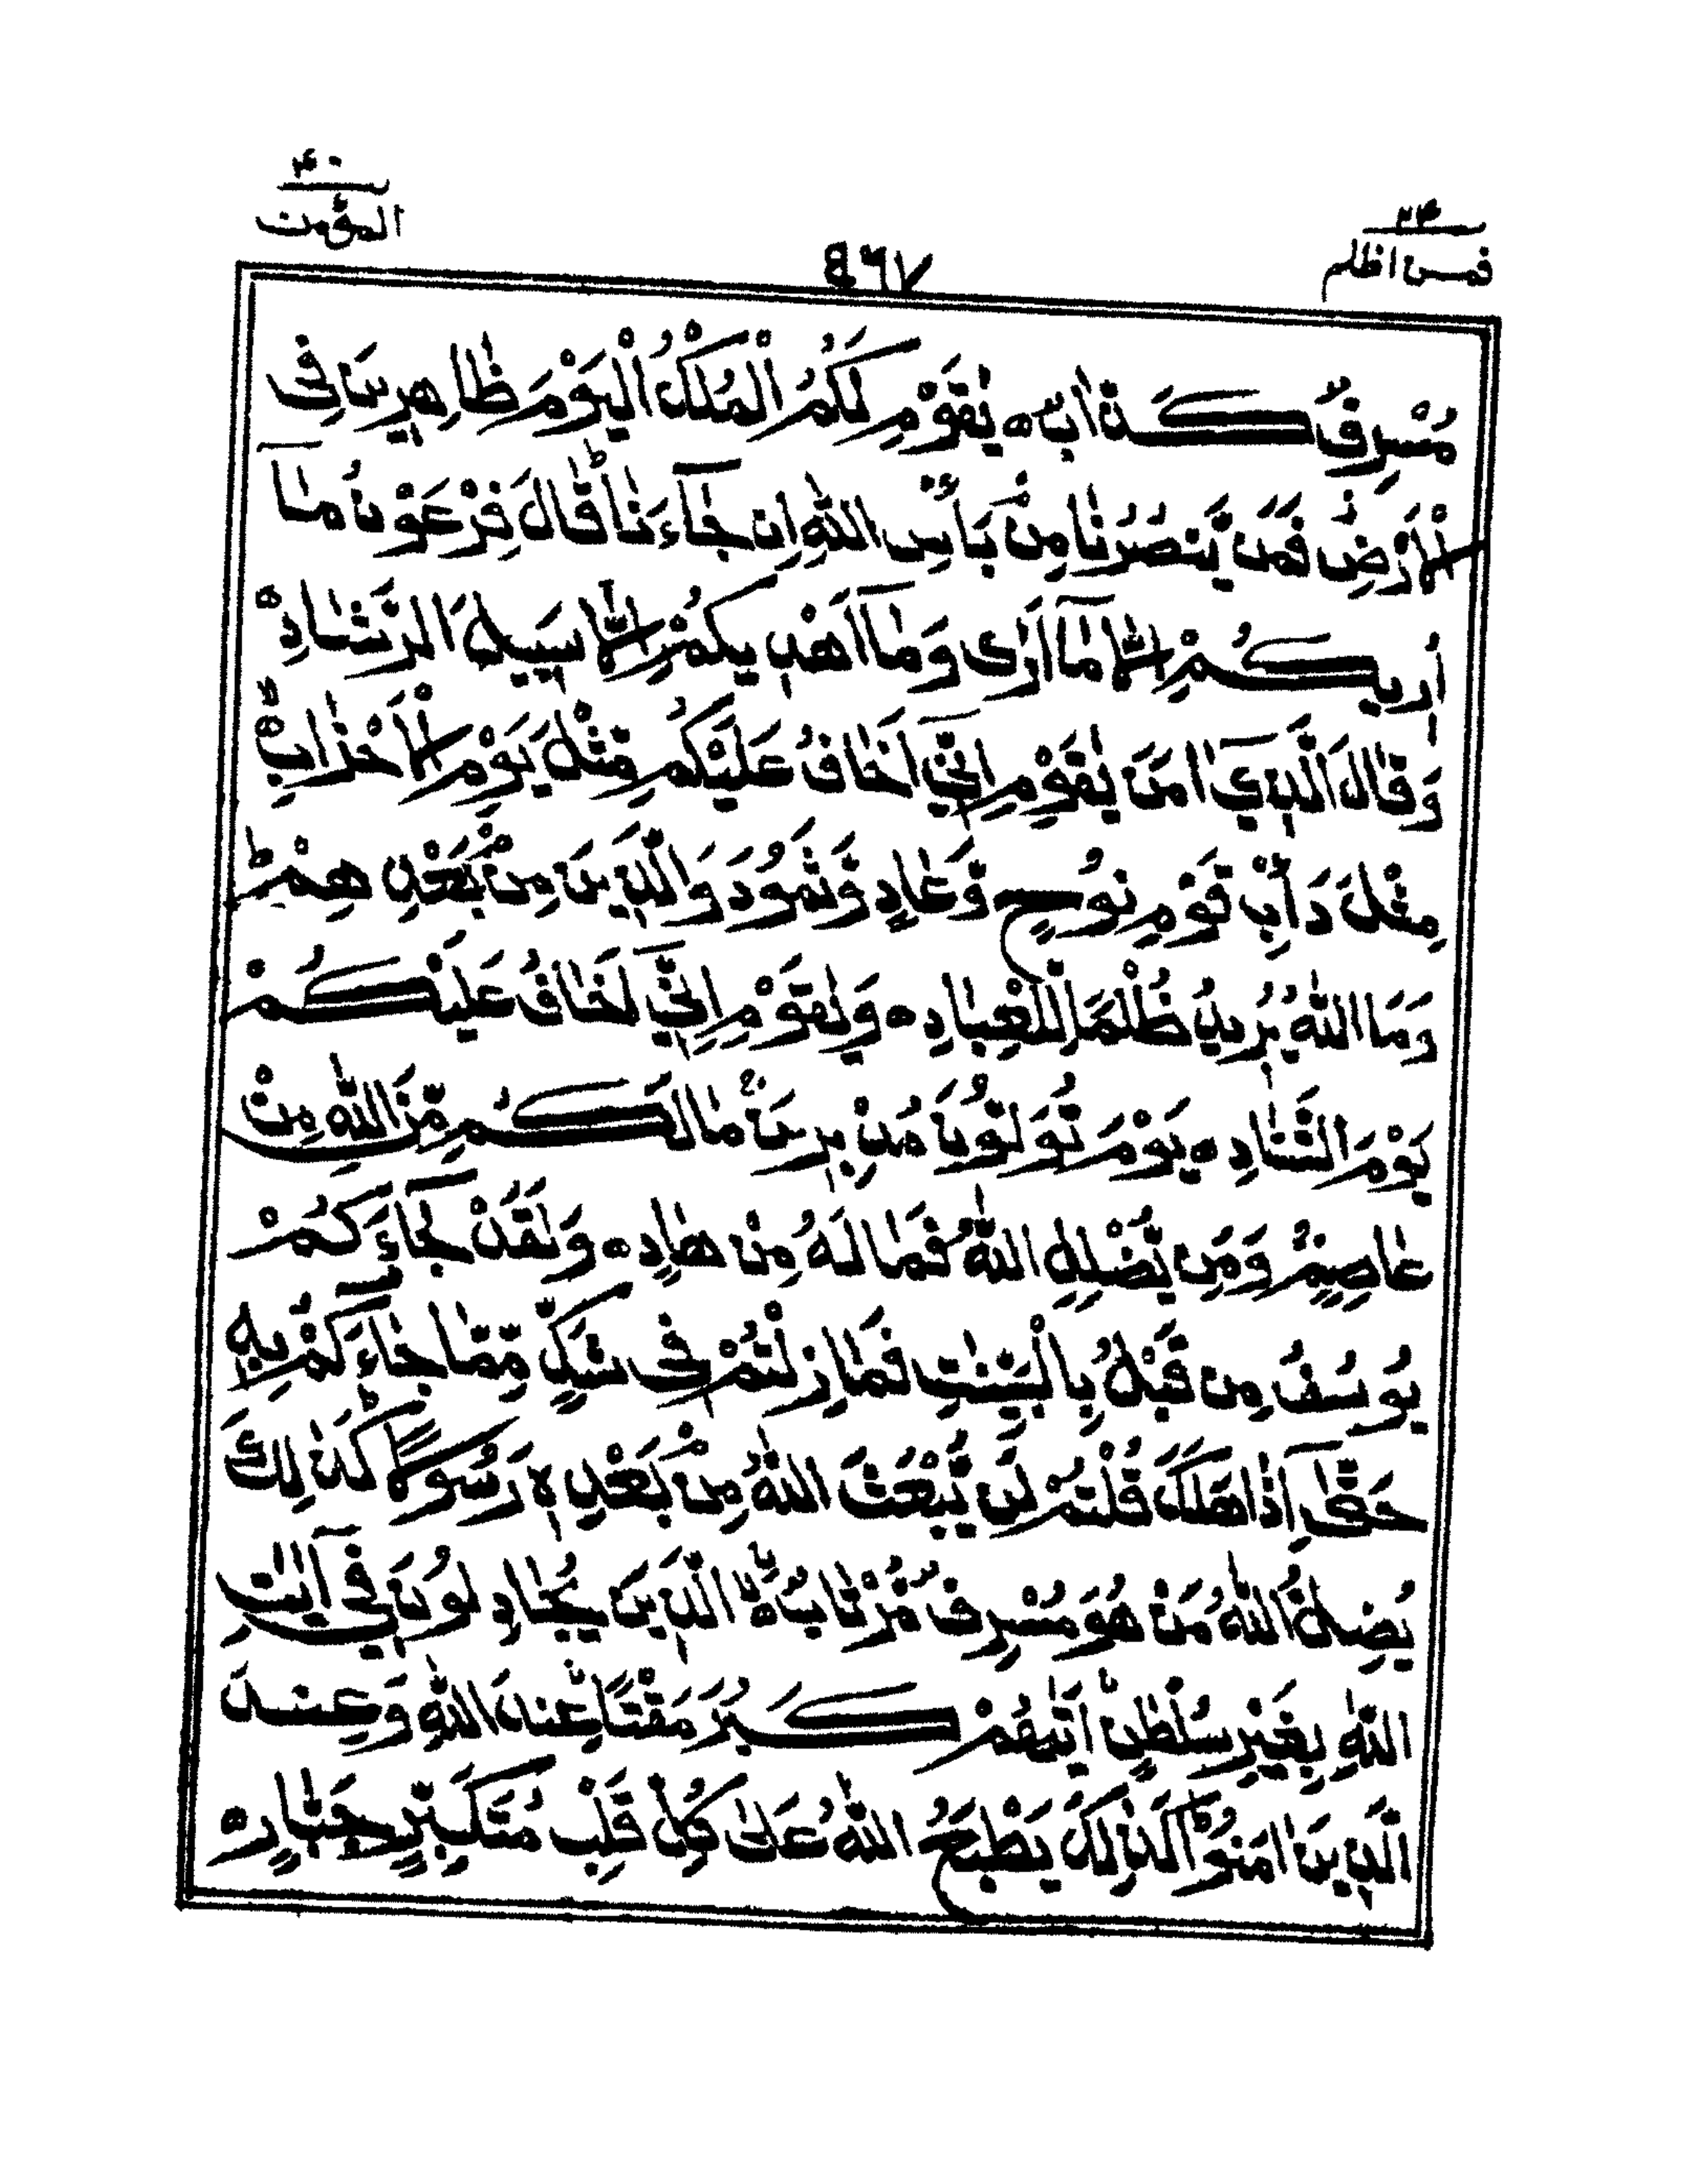 ۴۰
المؤمن
۲۴
فمن اظلم
۵۶۷
مُسْرِفٌ كَذَّابٌ ه يٰقَوْمِ لَكُمُ الْمُلْكُ الْيَوْمَ ظٰاهِرِيْنَ فِي
الْاَرْضِ فَمَن يَّنصُرُنٰا مِنْۢ بَأْسِ اللّٰهِ اِن جٰآءَنٰا ؕ قٰالَ فِرْعَوْنُ مٰآ
اُرِيكُمْ اِلّٰا مٰآ اَرٰى وَمٰآ اَهْدِيكُمْ اِلّٰا سَبِيلَ الرَّشٰادِ ه
وَقٰالَ الَّذِيٓ اٰمَنَ يٰقَوْمِ اِنِّيٓ اَخٰافُ عَلَيْكُم مِّثْلَ يَوْمِ الْاَحْزٰابِ ه
مِثْلَ دَأْبِ قَوْمِ نُوْحٍ وَّعٰادٍ وَّثَمُوْدَ وَالَّذِيْنَ مِنْۢ بَعْدِهِمْ ؕ
وَمَا اللّٰهُ يُرِيدُ ظُلْمًا لِّلْعِبٰادِ ه وَيٰقَوْمِ اِنِّيٓ اَخٰافُ عَلَيْكُمْ
يَوْمَ التَّنٰادِ ه يَوْمَ تُوَلُّوْنَ مُدْبِرِيْنَ مٰا لَكُم مِّنَ اللّٰهِ مِنْ
عٰاصِمٍ وَمَن يُّضْلِلِ اللّٰهُ فَمٰا لَهُ مِنْ هٰادٍ ه وَلَقَدْ جٰآءَكُمْ
يُوسُفُ مِن قَبْلُ بِالْبَيِّنٰتِ فَمٰا زِلْتُمْ فِي شَكٍّ مِّمّٰا جٰآءَكُمْ بِهِ
حَتّٰىٓ اِذٰا هَلَكَ قُلْتُمْ لَن يَّبْعَثَ اللّٰهُ مِنْۢ بَعْدِهٖ رَسُوْلًا ؕ كَذٰلِكَ
يُضِلُّ اللّٰهُ مَنْ هُوَ مُسْرِفٌ مُّرْتٰابٌ ه الَّذِيْنَ يُجٰادِلُوْنَ فِيٓ اٰيٰتِ
اللّٰهِ بِغَيْرِ سُلْطٰنٍ اَتٰىهُمْ كَبُرَ مَقْتًا عِندَ اللّٰهِ وَعِندَ
الَّذِيْنَ اٰمَنُوْا ؕ كَذٰلِكَ يَطْبَعُ اللّٰهُ عَلٰى كُلِّ قَلْبِ مُتَكَبِّرٍ جَبّٰارٍ ه